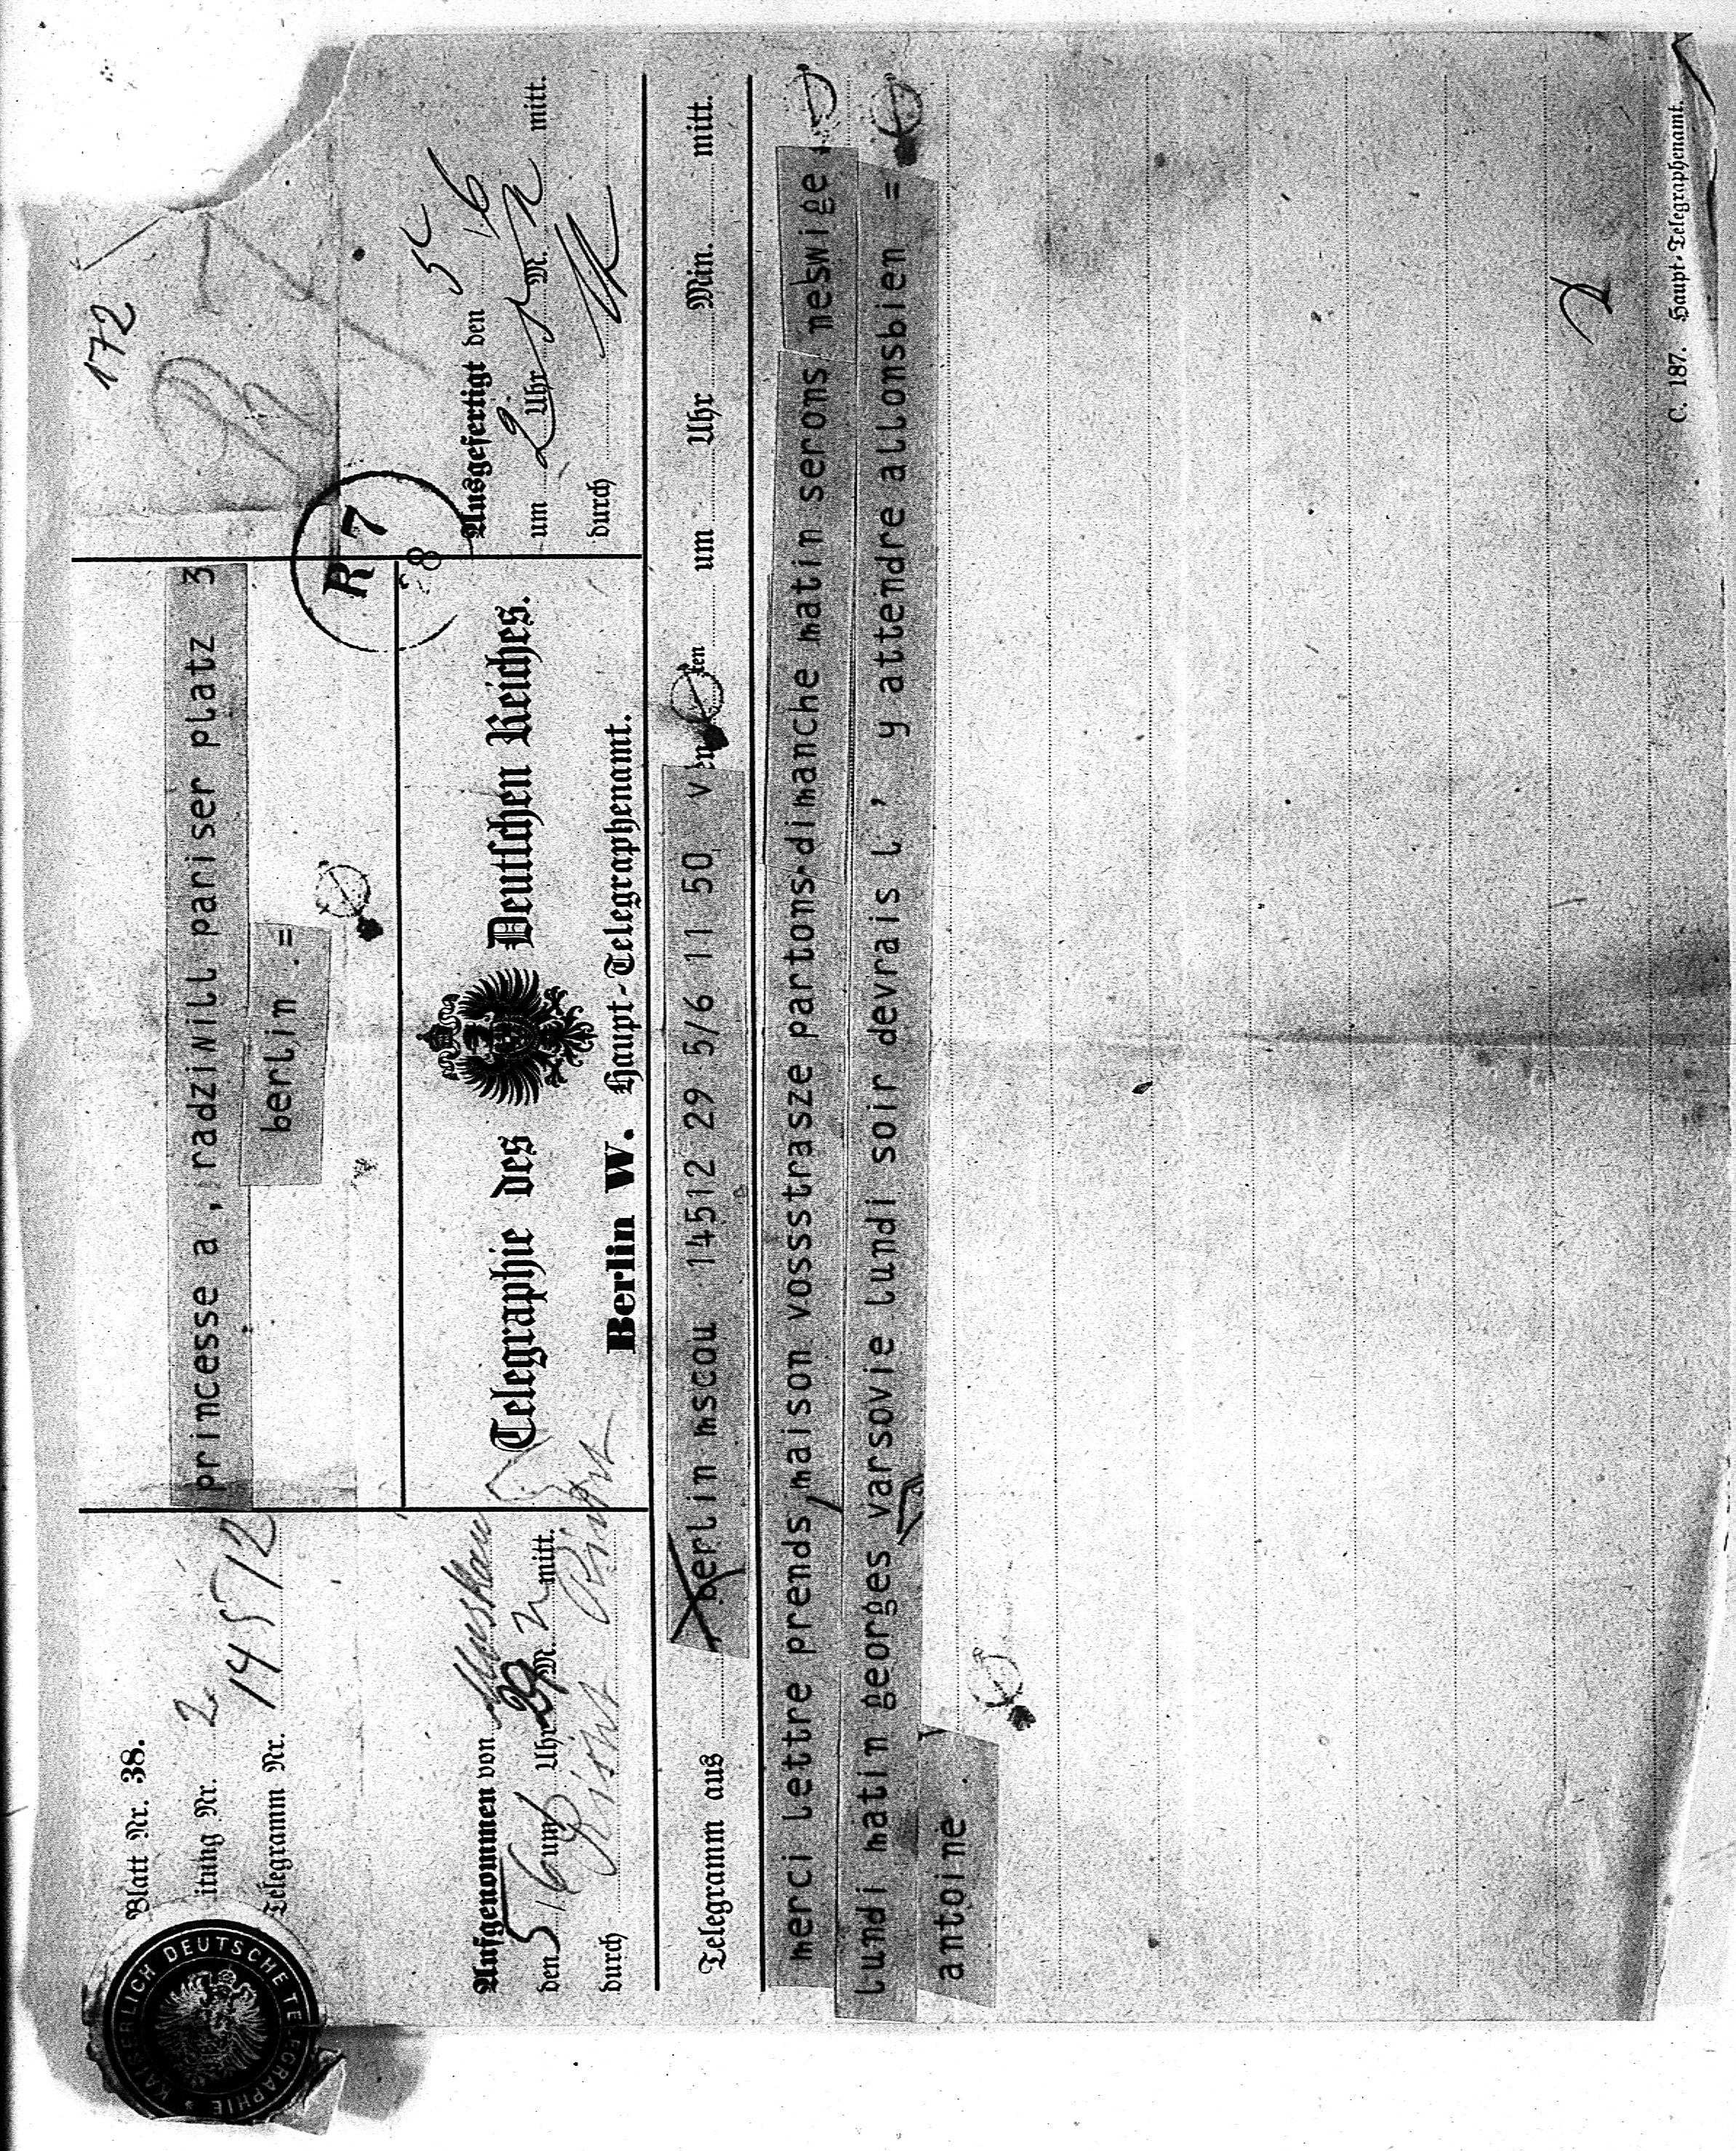 172
Blatt Nr. 38.
itung Nr. 2
Telegramm Nr. 14512
KAISERLICH DEUTSCHE TELEGRAPHIE *
princesse a , radziwill pariser platz 3
berlin . =
R 7
8
Aufgenommen von Muskau
den 5/6 um Uhr 29 M. n mitt.
durch
Telegraphie des Deutschen Reiches.
Berlin W. Haupt-Telegraphenamt.
Ausgefertigt den 5 16
um 2 Uhr M. n mitt.
durch
Telegramm aus berlin mscou 14512 29 5/6 11 50 v ten um Uhr Min. mitt.
merci lettre prends maison vossstrasze partons dimanche matin serons neswige
lundi matin georges varsovie lundi soir devrais l ' y attendre allonsbien =
antoine .
C. 187. Haupt-Telegraphenamt.